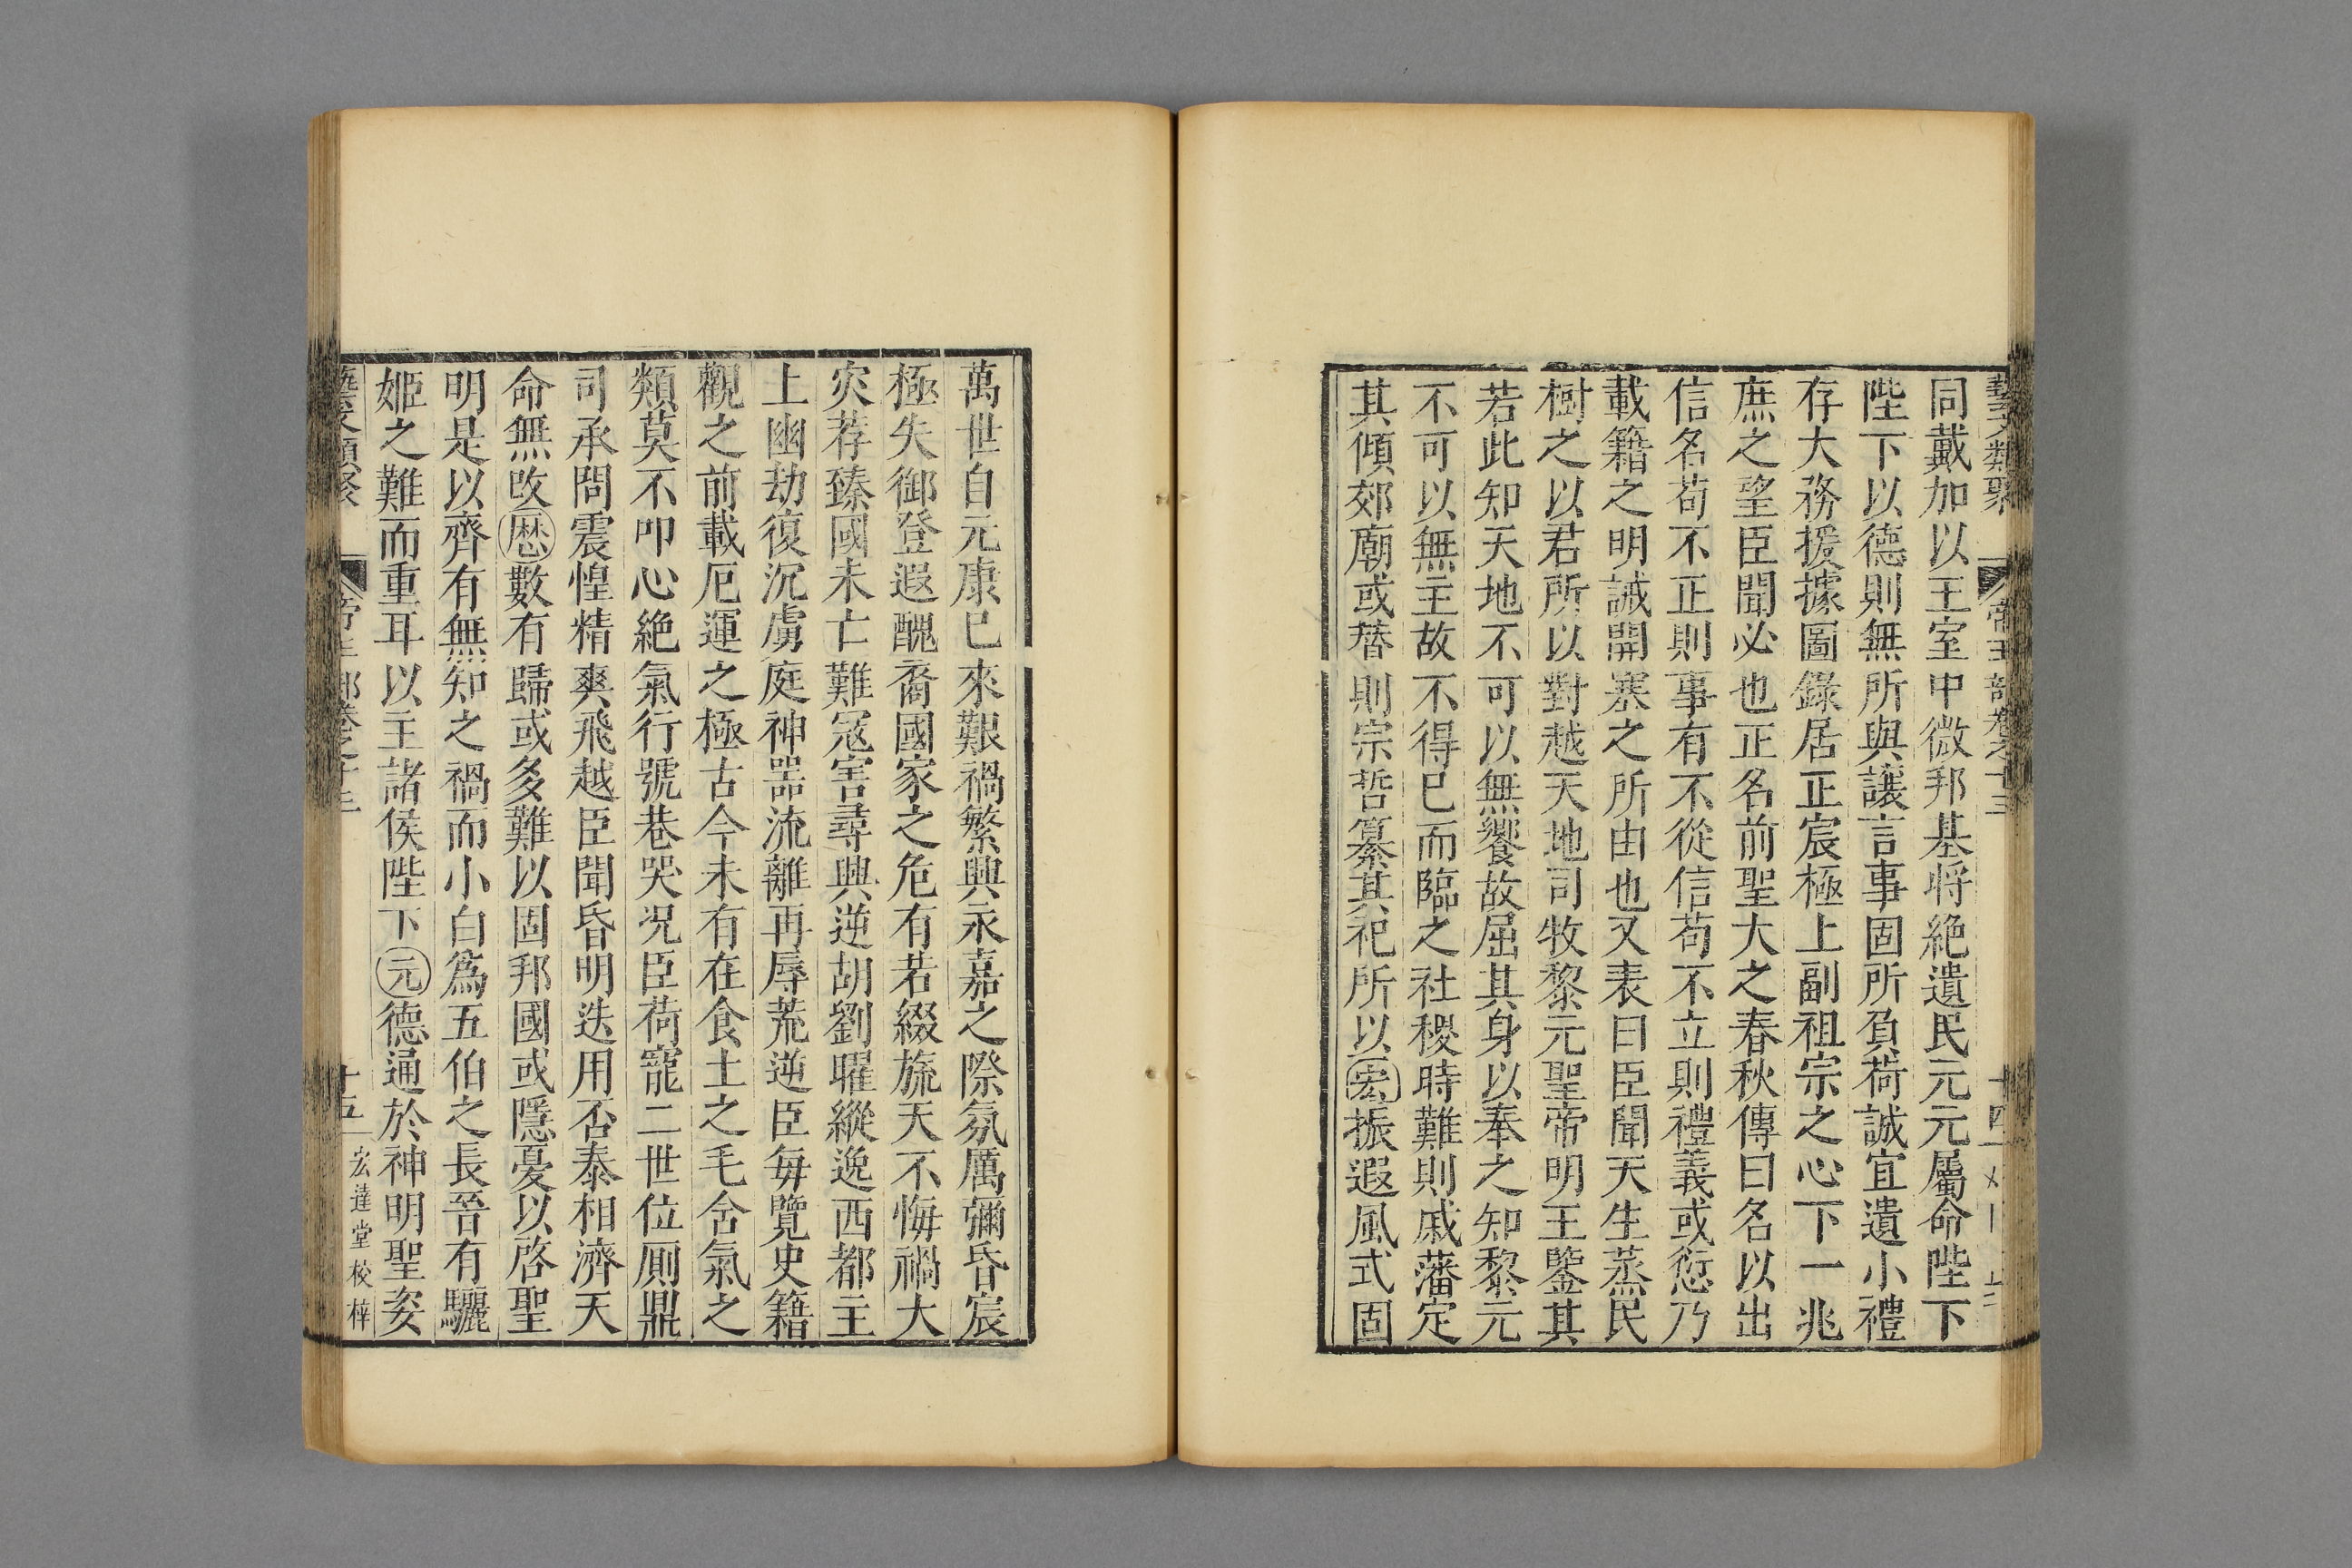 藝文類聚 帝王部卷之十三 十四
同戴加以王室中微邦基將絶遺民元元屬命陛下
陛下以德則無所與讓言事固所負荷誠宜遺小禮
存大務援據圖錄居正宸極上副祖宗之心下一兆
庶之望臣聞必也正名前聖大之春秋傳曰名以出
信名苟不正則事有不從信苟不立則禮義或愆乃
載籍之明誡開塞之所由也又表曰臣聞天生蒸民
樹之以君所以對越天地司牧黎元聖帝明王鑒其
若此知天地不可以無饗故屈其身以奉之知黎元
不可以無主故不得已而臨之社稷時難則戚藩定
其傾郊廟或替則宗哲纂其祀所以宏振遐風式固
萬世自元康已來艱禍繁興永嘉之際氛厲彌昏宸
極失御登遐醜裔國家之危有若綴旒天不悔禍大
灾荐臻國未亡難寇害尋興逆胡劉曜縱逸西都主
上幽劫復沉虜庭神器流離再辱荒逆臣每覽史籍
觀之前載厄運之極古今未有在食土之毛含氣之
類莫不叩心絶氣行號巷哭況臣荷寵二世位厠鼎
司承問震惶精爽飛越臣聞昏明迭用否泰相濟天
命無改歷數有歸或多難以固邦國或隱憂以啓聖
明是以齊有無知之禍而小白爲五伯之長晉有驪
姬之難而重耳以主諸侯陛下元德通於神明聖姿
藝文類聚 帝王部卷之十三 十五 宏達堂校梓